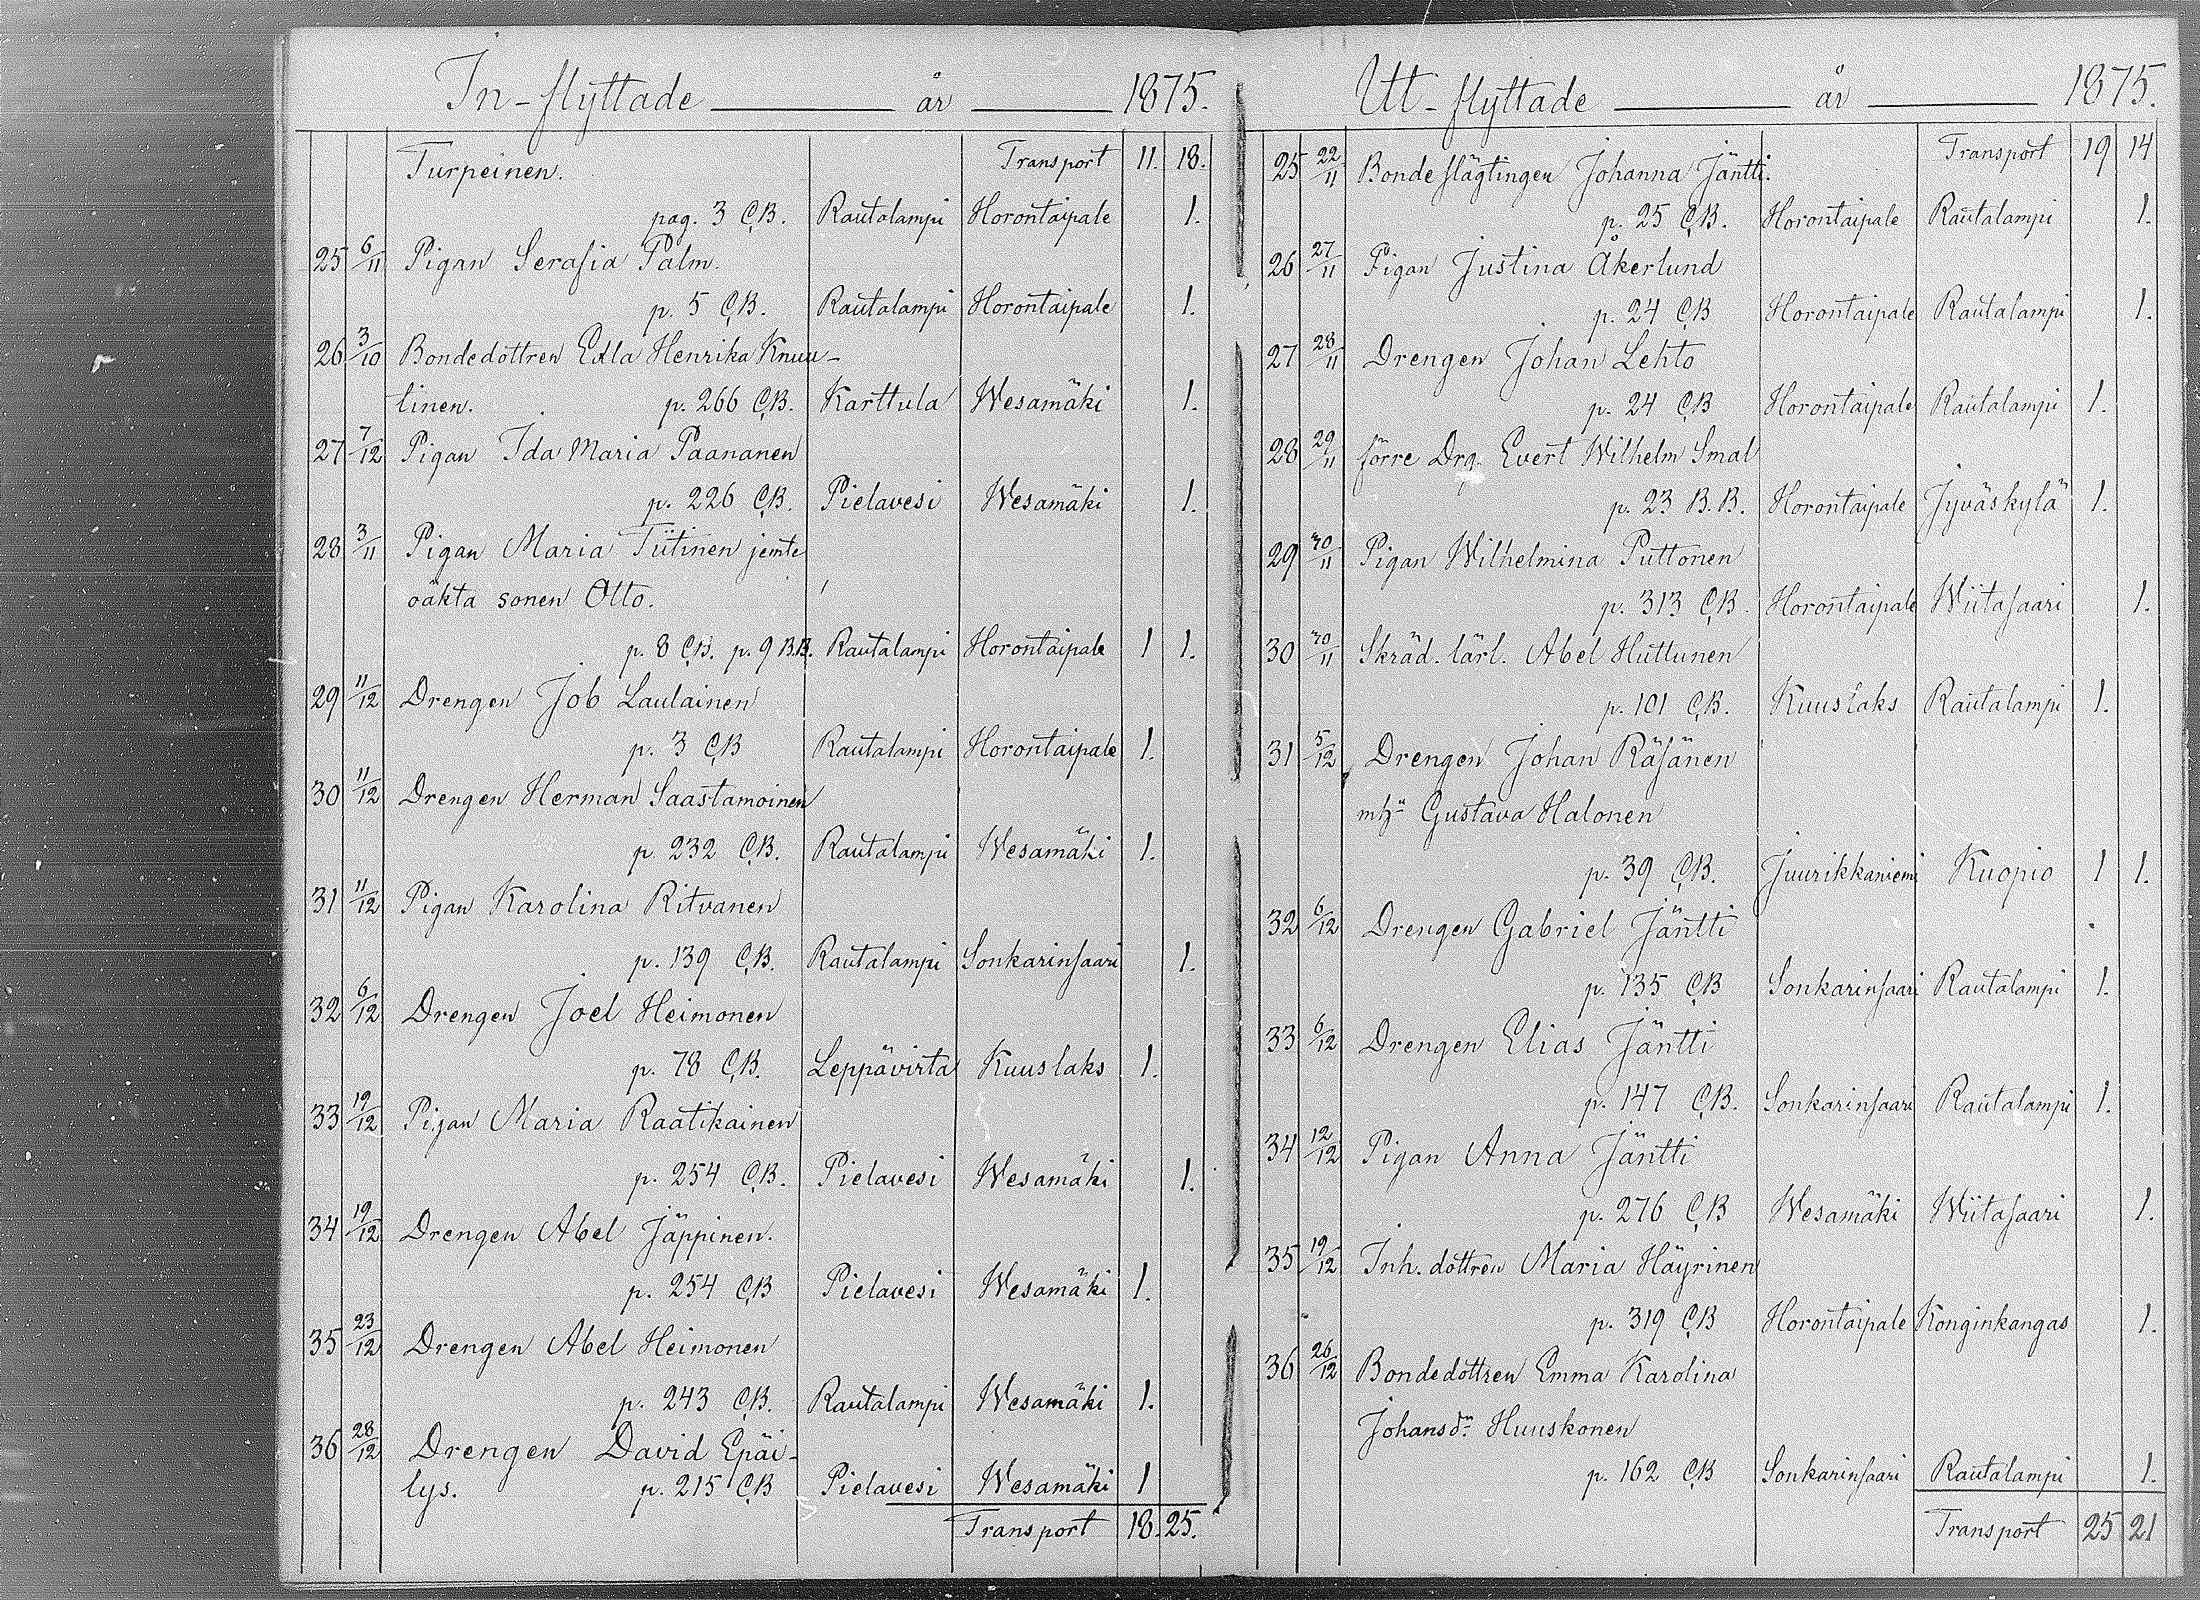 In-flyttade år 1875.
Turpeinen. Transport 11. 18.
pag. 3 C,B. Rautalampi Horontaipale 1.
25 6/11 Pigan Serafia Palm.
p. 5 C,B. Rautalampi Horontaipale 1.
26 3/10 Bondedottren Edla Henrika Knuu-
tinen. p. 266 C,B. Karttula Wesamäki 1.
27 7/12 Pigan Ida Maria Paananen
p. 226 C,B. Pielavesi Wesamäki 1.
28 3/11 Pigan Maria Tiitinen jemte
oäkta sonen Otto.
p. 8 C,B. p. 9 B.B. Rautalampi Horontaipale 1 1.
29 11/12 Drengen Job Laulainen
p. 3 C,B Rautalampi Horontaipale 1.
30 11/12 Drengen Herman Saastamoinen
p. 232 C,B. Rautalampi Wesamäki 1.
31 11/12 Pigan Karolina Ritvanen
p. 139 C,B. Rautalampi Sonkarinsaari 1.
32 6/12 Drengen Joel Heimonen
p. 78 C,B. Leppävirta Kuuslaks 1.
33 19/12 Pigan Maria Raatikainen
p. 254 C,B. Pielavesi Wesamäki 1.
34 19/12 Drengen Abel Jäppinen.
p. 254 C,B Pielavesi Wesamäki 1.
35 23/12 Drengen Abel Heimonen
p. 243 C,B. Rautalampi Wesamäki 1.
36 28/12 Drengen David Epäi-
lys. p. 215 C,B Pielavesi Wesamäki 1
Transport 18. 25.
Ut-flyttade år 1875.
Transport 19 14
25 22/11 Bondeslägtingen Johanna Jäntti.
p. 25 C,B. Horontaipale Rautalampi 1.
26 27/11 Pigan Justina Åkerlund
p. 24 C,B Horontaipale Rautalampi 1.
27 28/11 Drengen Johan Lehto
p. 24 C,B Horontaipale Rautalampi 1.
28 29/11 förre Drg. Evert Wilhelm Smal
p. 23 B.B. Horontaipale Jyväskylä 1.
29 30/11 Pigan Wilhelmina Puttonen
p. 313 C,B. Horontaipale Wiitasaari 1.
30 30/11 Skräd. lärl. Abel Huttunen
p. 101 C,B. Kuuslaks Rautalampi 1.
31 5/12 Drengen Johan Räsänen
Gustava Halonen
p. 39 C,B. Juurikkaniemi Kuopio 1 1.
32 6/12 Drengen Gabriel Jäntti
p. 135 C,B Sonkarinsaari Rautalampi 1.
33 6/12 Drengen Elias Jäntti
p. 147 C,B. Sonkarinsaari Rautalampi 1.
34 12/12 Pigan Anna Jäntti
p. 276 C,B Wesamäki Wiitasaari 1.
35 19/12 Inh. dottren Maria Häyrinen
p. 319 C,B Horontaipale Konginkangas 1.
36 26/12 Bondedottren Emma Karolina
Johansdr. Huuskonen
p. 162 C,B Sonkarinsaari Rautalampi 1.
Transport 25 21